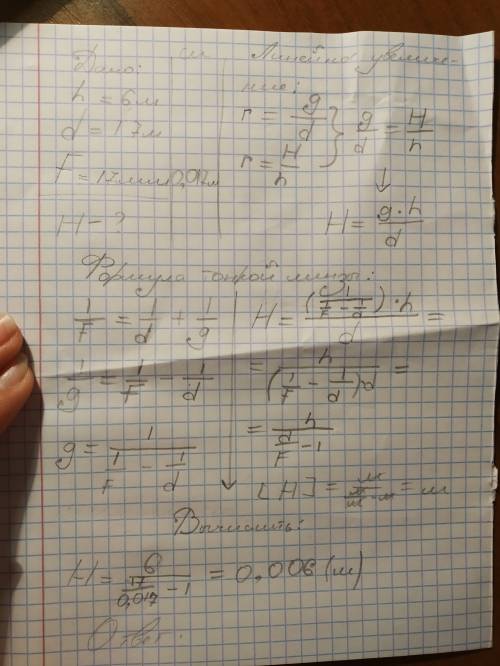 Дано:
си
Линейное увеличе-
ние:
h = 6м
d = 17м
F = 17мм 0,017м
H - ?
Г = g/d } g/d = H/h
Г = H/h
↓
H = g·h/d
Формула тонкой линзы:
1/F = 1/d + 1/g
1/g = 1/F - 1/d
g = 1/(1/F - 1/d)
H = (1/(1/F - 1/d))·h/d =
= h/((1/F - 1/d)d) =
= h/(d/F - 1)
[H] = м/(м/м - м) = м
Вычислить:
H = 6/(17/0,017 - 1) = 0,006 (м)
Ответ: